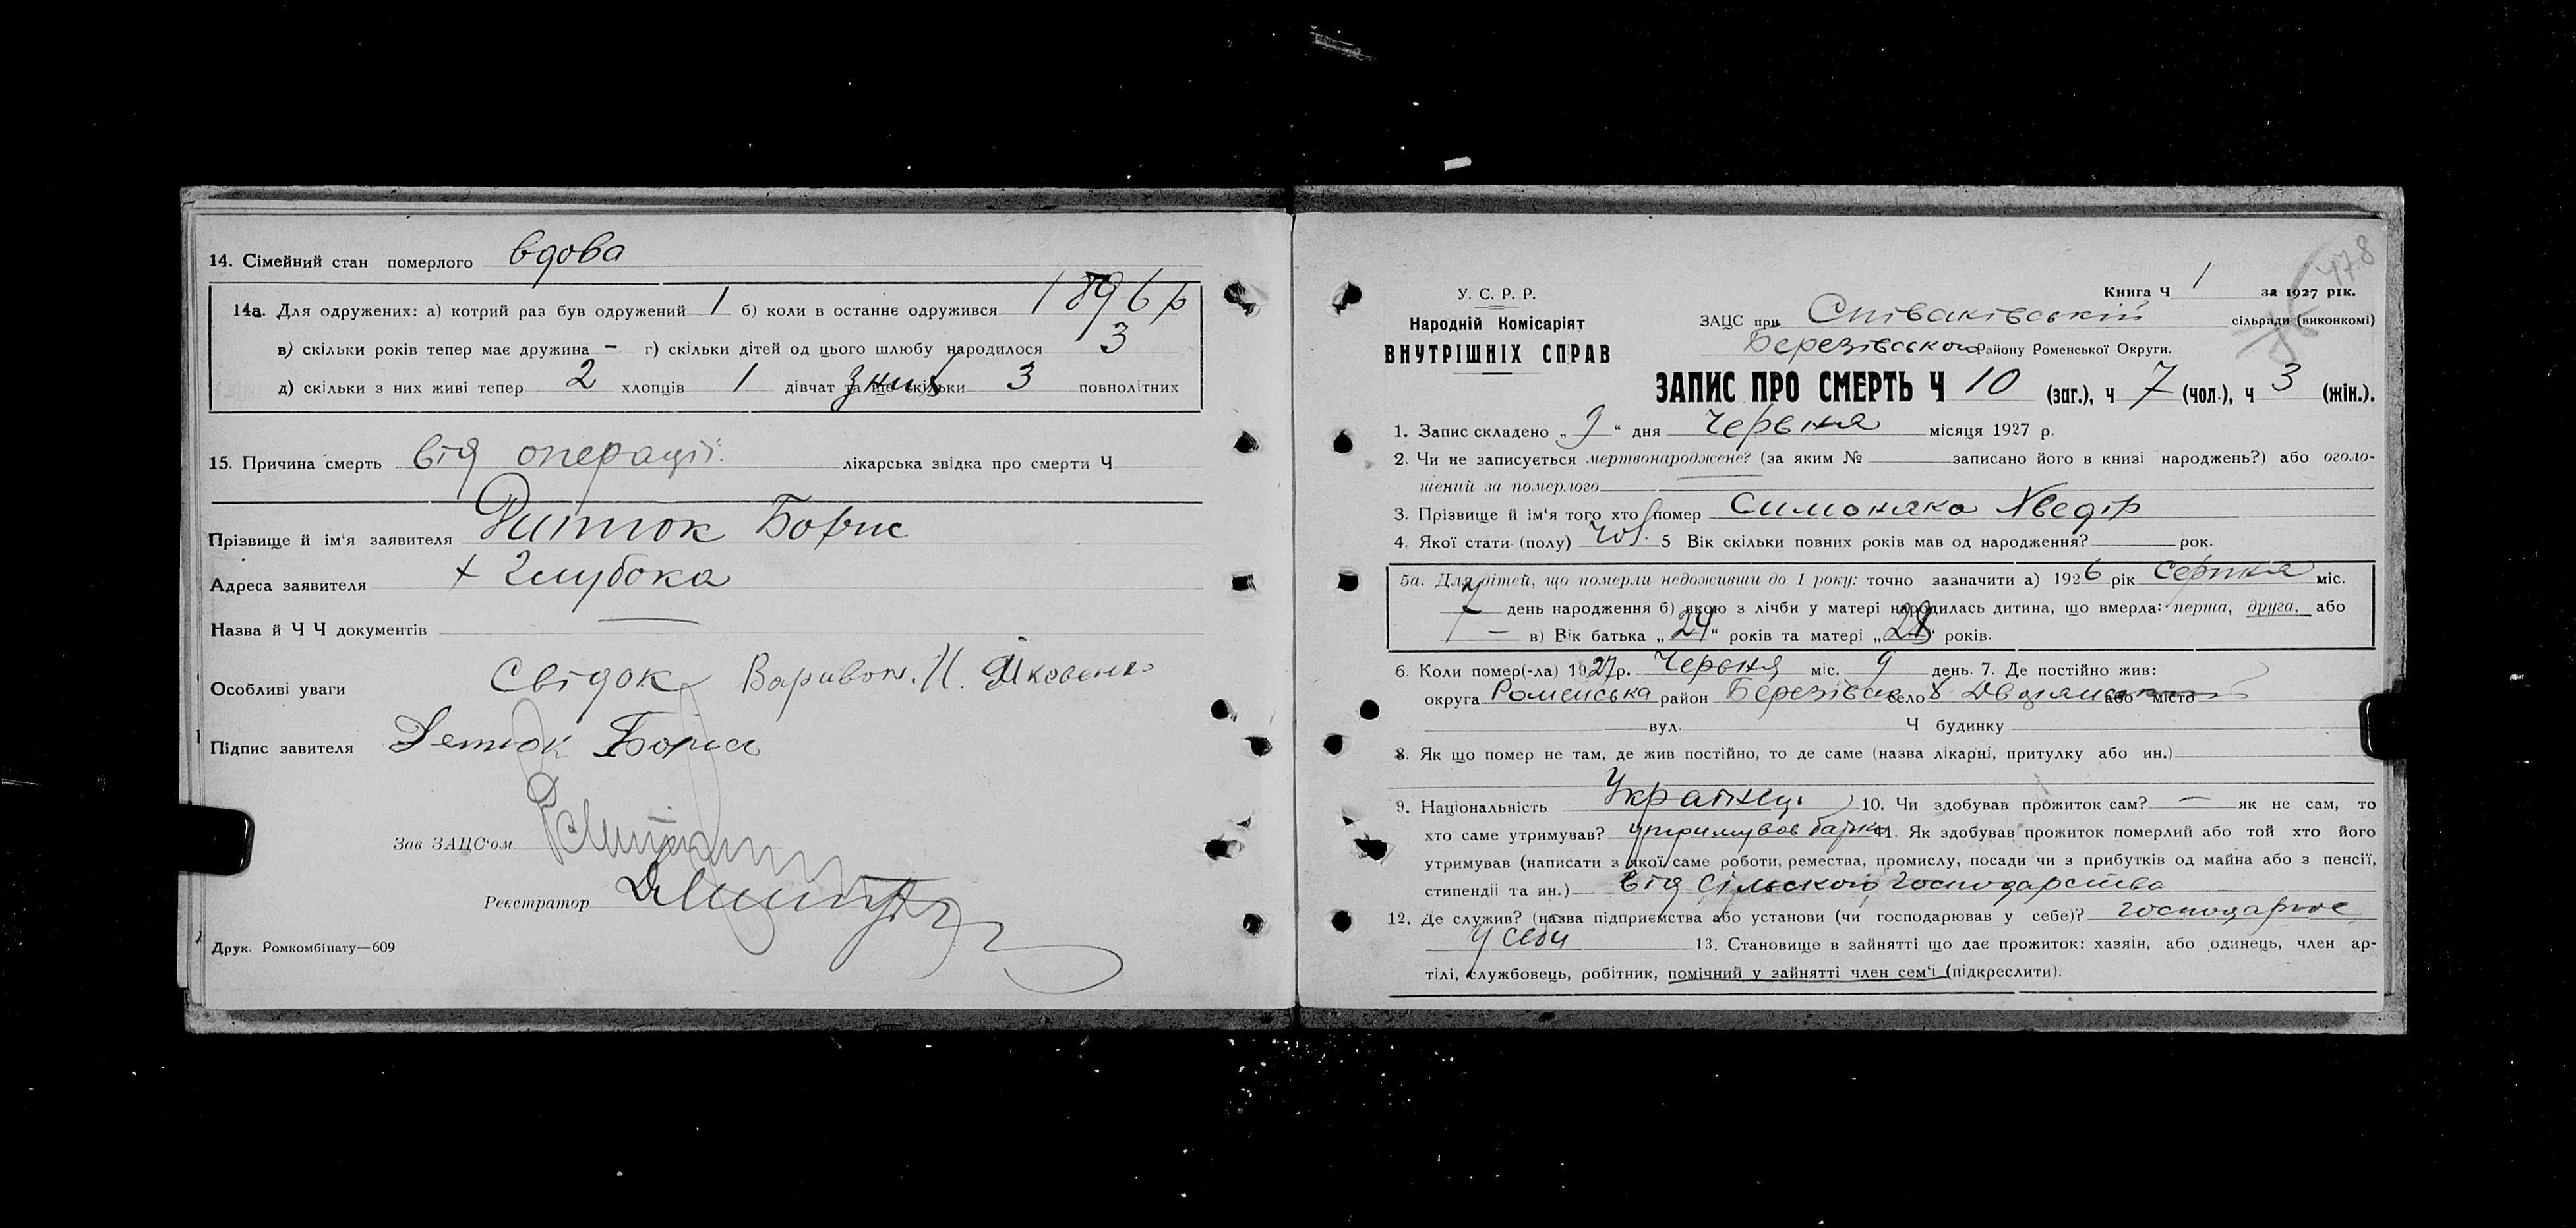 14. Сімейний стан померлого вдова
14а. Для одружених: а) котрий раз був одружений 1 б) коли в останнє одружився 1896 р
в) скільки років тепер має дружина – г) скільки дітей од цього шлюбу народилося 3
д) скільки з них живі тепер 2 хлопців 1 дівчат та ще скільки з них 3 повнолітних
15. Причина смерть від операції. лікарська звідка про смерти Ч
Прізвище й ім'я заявителя Борис
Адреса заявителя х Глубока
Назва й Ч Ч документів —
Особливі уваги Свідок Варивон. Яковенко
Підпис завителя Борис
Зав ЗАЦС'ом
Реєстратор
Друк. Ромкомбінату—609
478
У. С. Р. Р.
Народній Комісаріят
ВНУТРІШНІХ СПРАВ
Книга Ч 1 за 1927 рік.
ЗАЦС при Співаківській сільради (виконкомі)
Березівського Району Роменської Округи.
ЗАПИС ПРО СМЕРТЬ Ч 10 (заг.), ч 7 (чол.), ч 3 (жін.).
1. Запис складено „ 9 “ дня Червня місяця 1927 р.
2. Чи не записується мертвонароджене? (за яким № записано його в книзі народжень?) або оголо-
шений за померлого
3. Прізвище й ім'я того хто помер Симоняка Хведір
4. Якої стати (полу) чол. 5 Вік скільки повних років мав од народження? рок.
5а. Для дітей, що померли недоживши до 1 року: точно зазначити а) 1926 рік Серпня міс.
день народження б) якою з лічби у матері народилась дитина, що вмерла: перша, друга, або
– в) Вік батька „24“ років та матері „28“ років.
6. Коли помер(-ла) 1927 р. Червня міс. 9 день. 7. Де постійно жив:
округа Роменська район Березівс село х або місто
вул. Ч будинку
8. Як що помер не там, де жив постійно, то де саме (назва лікарні, притулку або ин.)
9. Національність Українец. 10. Чи здобував прожиток сам? – як не сам, то
хто саме утримував? утримував батько 11. Як здобував прожиток померлий або той хто його
утримував (написати з якої саме роботи, ремества, промислу, посади чи з прибутків од майна або з пенсії,
стипендії та ин.) від сільского господарства
12. Де служив? (назва підприємства або установи (чи господарював у себе)? господарює
у себи 13. Становище в зайнятті що дає прожиток: хазяін, або одинець, член ар-
тілі, службовець, робітник, помічний у зайнятті член сем'ї (підкреслити).